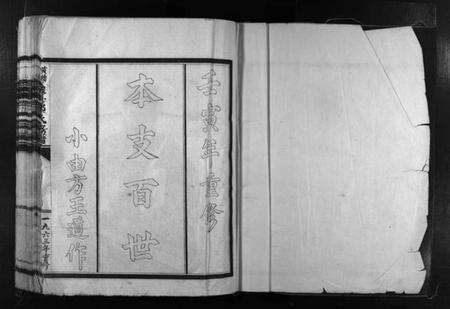 壬寅年重修
本支百世
小由方王道作
一九六三年